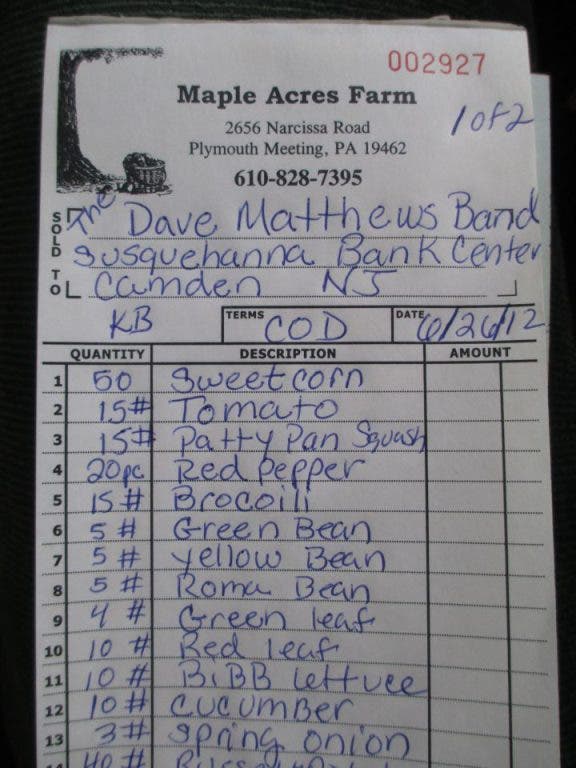 002927
Maple Acres Farm
1 of 2
2656 Narcissa Road
Plymouth Meeting, PA 19462
610-828-7395
SOLD TO
The Dave Matthews Band
Susquehanna Bank Center
Camden NJ
KB TERMS COD DATE 6/26/12
QUANTITY DESCRIPTION AMOUNT
1 50 Sweet corn
2 15# Tomato
3 15# Patty Pan Squash
4 20pc Red Pepper
5 15# Brocoili
6 5# Green Bean
7 5# Yellow Bean
8 5# Roma Bean
9 4# Green leaf
10 10# Red leaf
11 10# BiBB lettuce
12 10# Cucumber
13 3# Spring onion
14 40#